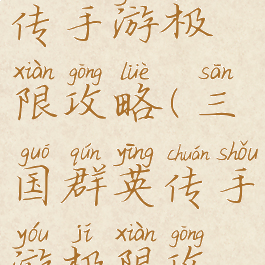 传手游极
xiàn gōng lüè sān
限攻略(三
guó qún yīng chuán shǒu
国群英传手
yóu jí xiàn gōng
游极限攻